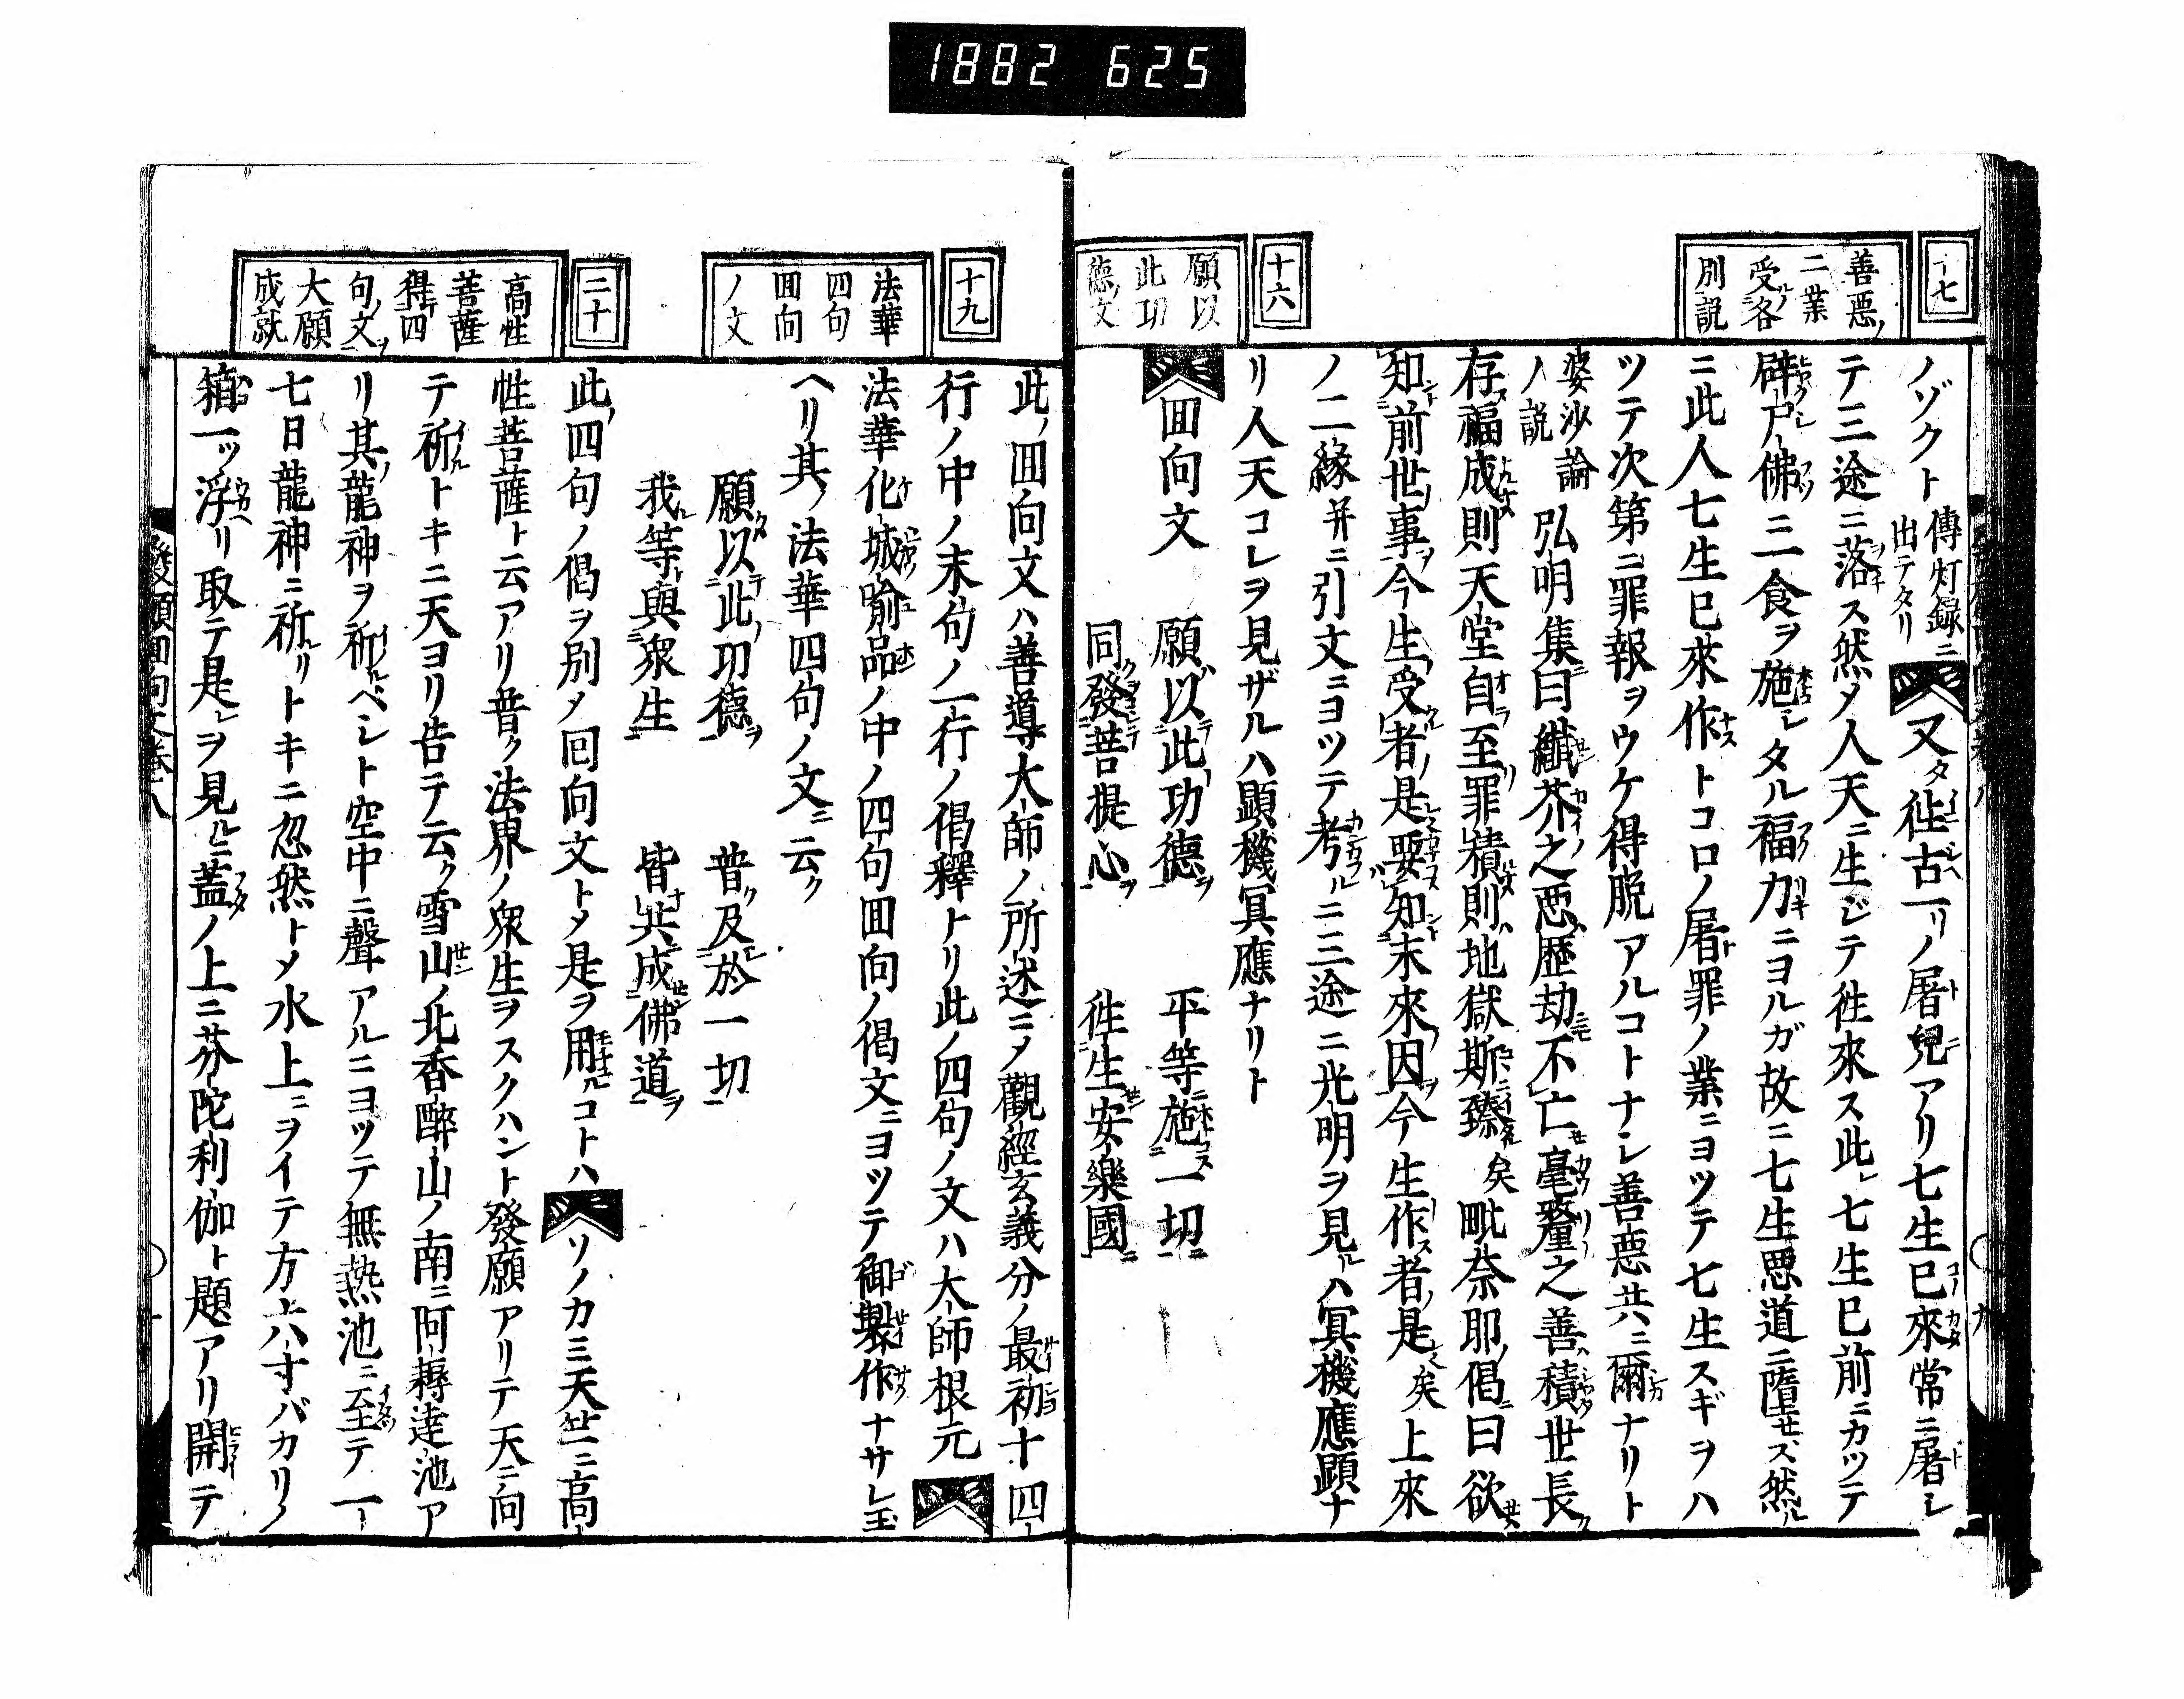 1882 625
十七
善惡ノ
二業
受ルノ各
別ノ説
ノゾクト傳灯録ニ出テタリ又タ徃古一リノ屠兒アリ七生已來常ニ屠シ
テ三途ニ落ス然メ人天ニ生ジテ徃來ス此レ七生已前ニカツテ
辟尸佛ニ一食ヲ施シタル福力ニヨルガ故ニ七生悪道ニ墮セズ然ル
ニ此人七生已來作トコロノ屠罪ノ業ニヨツテ七生スギヲハ
ツテ次第ニ罪報ヲウケ得脱アルコトナシ善悪共ニ爾ナリト
婆沙論ノ説弘明集曰纖芥之悪歴劫不亡毫釐之善積世長
存福成則天堂自至罪積則地獄斯臻矣毗奈耶ノ偈曰欲
知前世事今生受者是要知未來因今生作者是矣上來
ノ二縁并ニ引文ニヨツテ考ルニ三途ニ光明ヲ見ルハ冥機應顕ナ
リ人天コレヲ見ザルハ顕機冥應ナリト
十六
願以
此功
德ノ文
囬向文　願以此功德　平等施一切
同發菩提心　徃生安樂國
十九
法華
四句
囬向
ノ文
此ノ囬向文ハ善導大師ノ所述ニメ觀經玄義分ノ最初十四
行ノ中ノ末句ノ一行ノ偈釋トリ此ノ四句ノ文ハ大師根元
法華化城喩品ノ中ノ四句囬向ノ偈文ニヨツテ御製作ナサレ玉
ヘリ其ノ法華四句ノ文ニ云ク
願以此功德　普及於一切
我等與衆生　皆共成佛道
二十
高性
菩薩
得四
句ノ文
大願
成就
此ノ四句ノ偈ヲ別メ回向文トメ是ヲ用ルコトハソノカミ天竺ニ高
性菩薩ト云アリ普ク法界ノ衆生ヲスクハント發願アリテ天ニ向
テ祈トキニ天ヨリ告テ云ク雪山ノ北香醉山ノ南ニ阿耨達池ア
リ其ノ龍神ヲ祈ルベシト空中ニ聲アルニヨツテ無熱池ニ至テ一
七日龍神ニ祈リトキニ忽然トメ水上ニヲイテ方六寸バカリノ
箱一ツ浮リ取テ是レヲ見ルニ蓋ノ上ニ芬陀利伽ト題アリ開テ
發願囬向文巻八